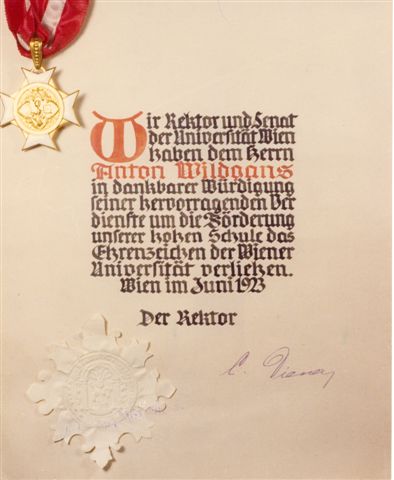 Wir Rektor und Senat
der Universität Wien
haben dem Herrn
Anton Wildgans
in dankbarer Würdigung
seiner hervorragenden Ver
dienste um die Förderung
unserer hohen Schule das
Ehrenzeichen der Wiener
Universität verliehen.
Wien im Juni 1923
Der Rektor
C. Diener